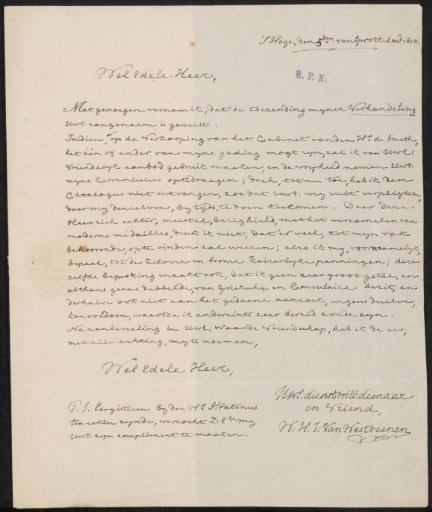 S'Hage, den 5den van 1810.
R. P. K.
Wel Edele Heer,
Met genoegen vernam ik, dat de toezending myner Verhandeling
Uwl. aangenaam is geweest.
Indien, op de Verkooping van het Cabinet van den Hr. de Smeth,
het één of ander van myne gading mogt zyn, zal ik van Uwl:
Vriendelyk aanbod gebruik maaken, en de vryheid nemen Uwl:
myne Commissien optedraagen; doch, tot nu toe, heb ik den
Catalogus niet ontvangen, zoo dat Uwl: my zult verpligten,
door my denzelven, by tyds, te doen toekomen. Daar deze
Heer zich echter, meestal, bezig hield, met het verzamelen van
moderne medailles, denk ik niet, dat er veel, tot myn vak
behoorende, op te vinden zal weezen; alzo ik my, voornamelyk,
bepaal, tot de Zilvere en bronze Keizerlyke penningen; deze
zelfde beperking maakt ook, dat ik geen zeer groot getal, en
althans geene dubbelde, van Grieksche en Consulaire bezit, en
derhalve ook niet aan het gedaane aanzoek, wegens dezelve,
kan voldoen, waartoe ik anderzints zeer bereid zoude zyn.
Na aanbeveeling in Uwl: waarde Vriendschap, heb ik de eer,
met alle achting, my te noemen,
Wel Edele Heer,
Uwl. dienstwillige dienaar
en Vriend,
W. H. J. Van Westreenen
P. S. Eergisteren by den Hr.
ten eeten zynde, verzocht Z. Ed. my
Uwl. zyn compliment te maaken.